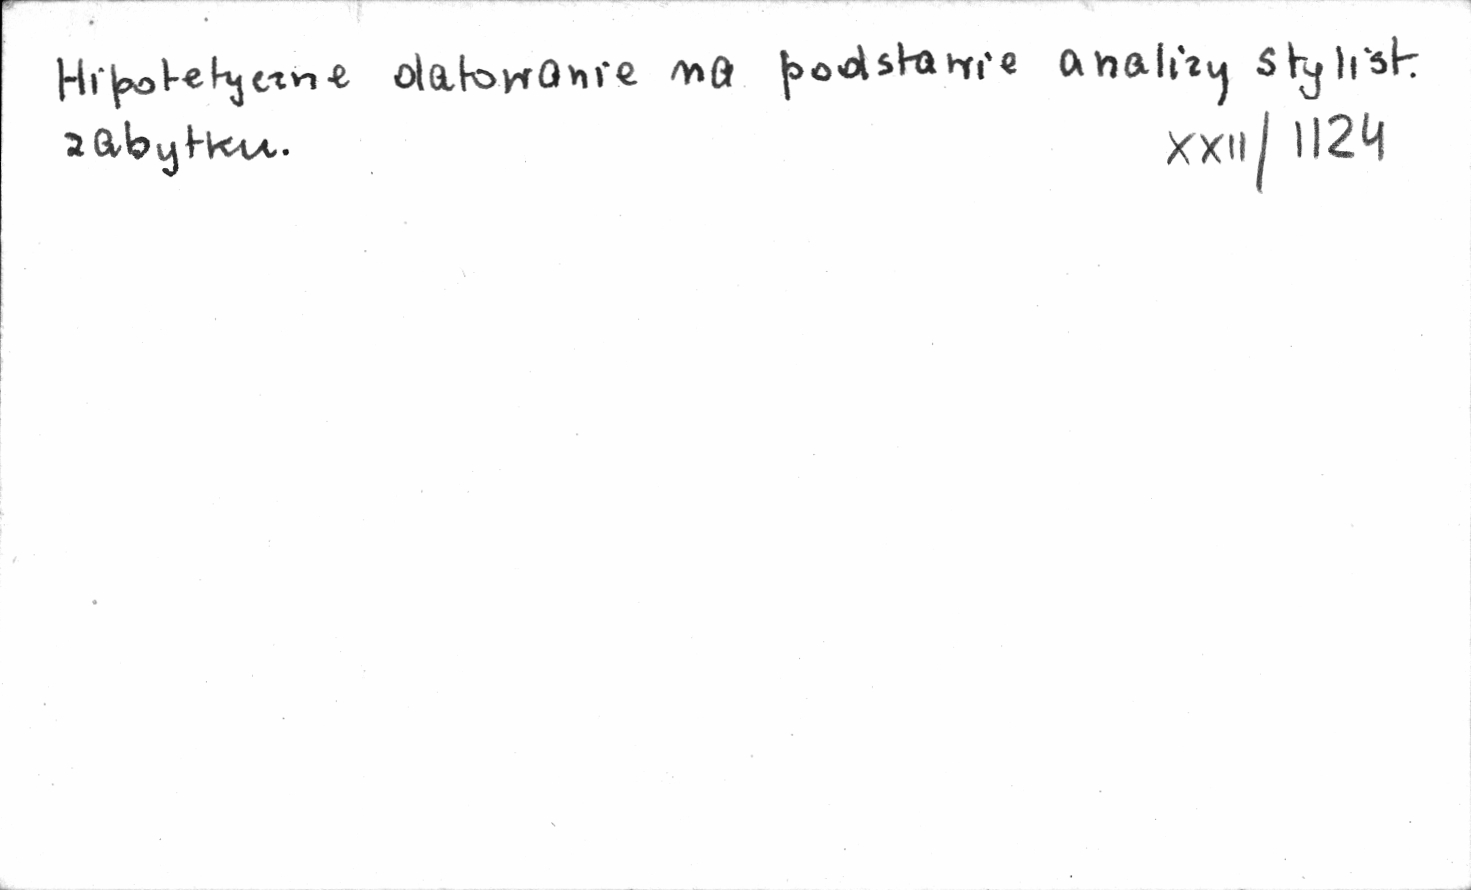 Hipotetyczne datowanie na podstawie analizy stylist.
zabytku. XXII/1124